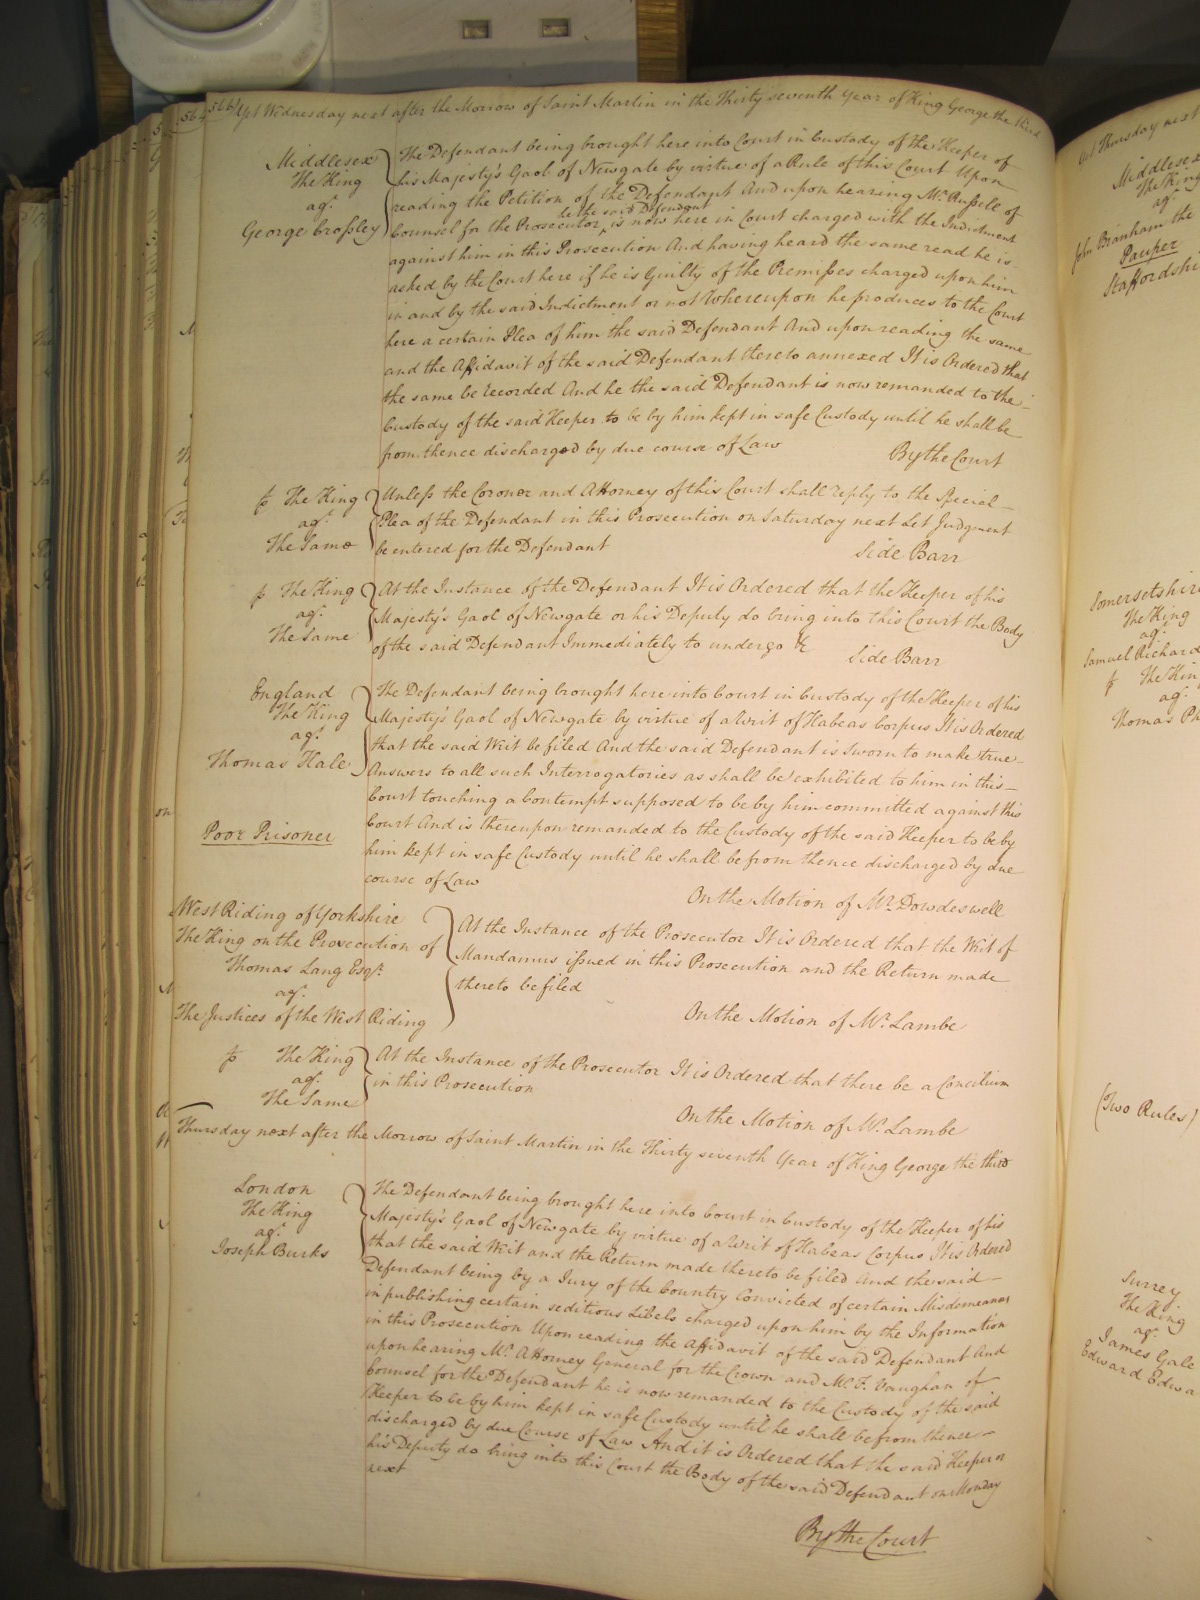 566 Yet Wednesday next after the Morrow of Saint Martin in the Thirty seventh Year of King George the third
Middlesex
The King
agt.
George Crossley
The Defendant being brought here into Court in Custody of the Keeper of
his Majesty's Gaol of Newgate by virtue of a Rule of this Court Upon
reading the Petition of the Defendant And upon hearing Mr. Russell of
he the said Defendant
Counsel for the Prosecutor ‸ is now here in Court charged with the Indictment
against him in this Prosecution And having heard the same read he is
asked by the Court here if he is Guilty of the Premisses charged upon him
in and by the said Indictment or not Whereupon he produces to the Court
here a certain Plea of him the said Defendant And upon reading the same
and the Affidavit of the said Defendant thereto annexed It is Ordered that
the same be Recorded And he the said Defendant is now remanded to the
Custody of the said Keeper to be by him kept in safe Custody until he shall be
from thence discharged by due course of Law
By the Court
The King
agt.
The Same
Unless the Coroner and Attorney of this Court shall reply to the Special
Plea of the Defendant in this Prosecution on Saturday next Let Judgment
be entered for the Defendant
Side Barr
The King
agt.
The Same
At the Instance of the Defendant It is Ordered that the Keeper of his
Majesty's Gaol of Newgate or his Deputy do bring into this Court the Body
of the said Defendant Immediately to undergo &c
Side Barr
England
The King
agt.
Thomas Hale
Poor Prisoner
The Defendant being brought here into Court in Custody of the Keeper of his
Majesty's Gaol of Newgate by virtue of a Writ of Habeas Corpus It is Ordered
that the said Writ be filed And the said Defendant is Sworn to make true
Answers to all such Interrogatories as shall be exhibited to him in this
Court touching a Contempt supposed to be by him committed against this
Court And is thereupon remanded to the Custody of the said Keeper to be by
him kept in safe Custody until he shall be from thence discharged by due
course of Law
On the Motion of Mr. Dowdeswell
West Riding of Yorkshire
The King on the Prosecution of
Thomas Lang Esqr.
agt.
The Justices of the West Riding
At the Instance of the Prosecutor It is Ordered that the Writ of
Mandamus issued in this Prosecution and the Return made
thereto be filed
On the Motion of Mr. Lambe
The King
agt.
The Same
At the Instance of the Prosecutor It is Ordered that there be a Concilium
in this Prosecution
On the Motion of Mr. Lambe
Thursday next after the Morrow of Saint Martin in the Thirty seventh Year of King George the third
London
The King
agt.
Joseph Burks
The Defendant being brought here into Court in Custody of the Keeper of his
Majesty's Gaol of Newgate by virtue of a Writ of Habeas Corpus It is Ordered
that the said Writ and the Return made thereto be filed And the said
Defendant being by a Jury of the Country Convicted of certain Misdemeanor
in publishing certain seditious Libels charged upon him by the Information
in this Prosecution Upon reading the Affidavit of the said Defendant And
upon hearing Mr. Attorney General for the Crown and Mr. F. Vaughan of
Counsel for the Defendant he is now remanded to the Custody of the said
Keeper to be by him kept in safe Custody until he shall be from thence
discharged by due Course of Law And it is Ordered that the said Keeper or
his Deputy do bring into this Court the Body of the said Defendant on Monday
next
By the Court
Yet Thursday next
Middlesex
The King
agt.
John Branham the
Pauper
Staffordshi
Somersetshire
The King
agt.
Samuel Richard
The King
agt.
Thomas Ph
(Two Rules)
Surrey
The King
agt.
James Gale
Edward Edwa